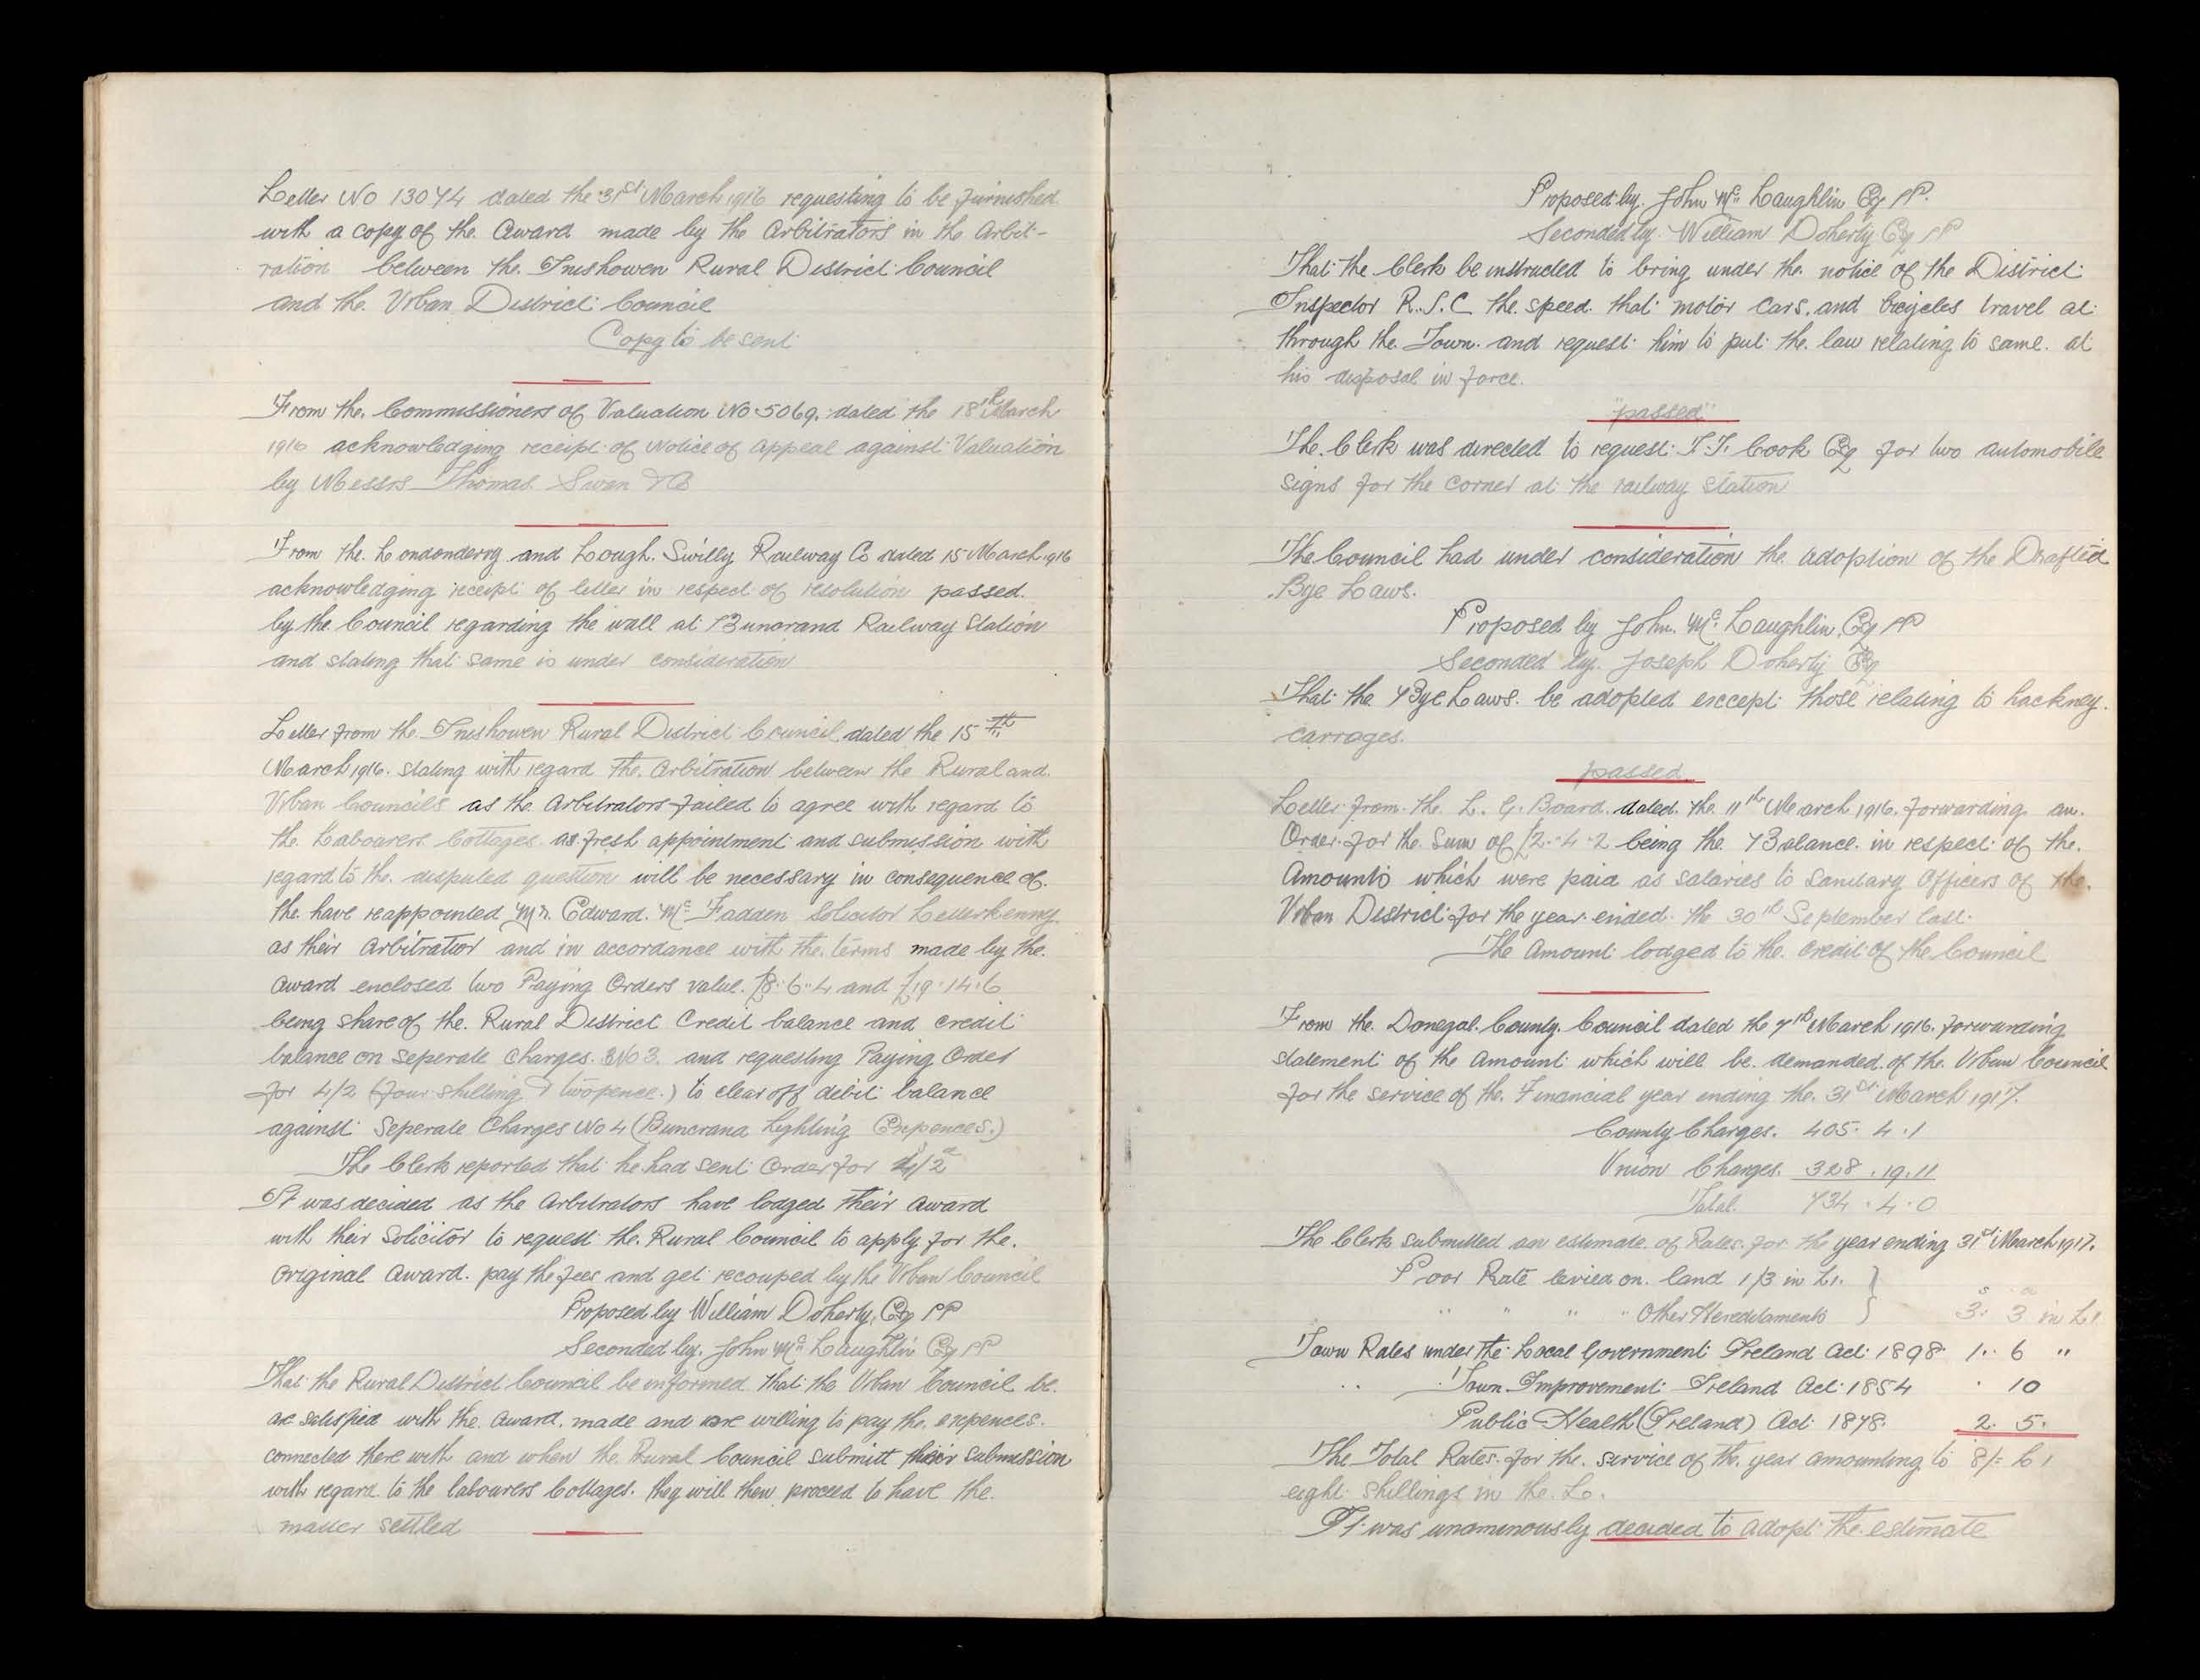 Letter No 13074 dated the 31st March 1916 requesting to be furnished
with a copy of the Award made by the Arbitrators in the Arbit-
ration between the Inishowen Rural District Council
and the Urban District Council
Copy to be sent
From the Commissioners of Valuation No 5069. dated the 18th March
1916 acknowledging receipt of Notice of Appeal against Valuation
by Messrs Thomas Swan & Co
From the Londonderry and Lough Swilly Railway Co dated 15 March 1916
acknowledging receipt of letter in respect of resolution passed
by the Council regarding the wall at Buncrana Railway Station
and stating that same is under consideration
Letter from the Inishowen Rural District Council dated the 15th
March 1916. stating with regard the Arbitration between the Rural and
Urban Councils as the Arbitrators failed to agree with regard to
the Labourers Cottages as fresh appointment and submission with
regard to the disputed question will be necessary in consequence of
the have reappointed Mr. Edward McFadden Solicitor Letterkenny
as their Arbitrator and in accordance with the terms made by the
Award enclosed two Paying Orders value £8.6.4 and £19.14.6
being share of the Rural District Credit balance and credit
balance on seperate charges No 3. and requesting Paying Order
for 4/2 (four shilling & twopence.) to clear off debit balance
against Seperate Charges No 4 (Buncrana Lighting Expences.)
The Clerk reported that he had sent Order for 4/2
It was decided as the Arbitrators have lodged their award
with their Solicitor to request the Rural Council to apply for the
Original Award. pay the fees and get recouped by the Urban Council
Proposed by William Doherty Esq JP
Seconded by John McLaughlin Esq JP
That the Rural District Council be informed that the Urban Council be
are satisfied with the Award, made and are willing to pay the expences
connected there with and when the Rural Council submitt their submission
with regard to the labourers Cottages. they will then proceed to have the
matter settled
Proposed by John McLaughlin Esq JP.
Seconded by William Doherty Esq JP
That the Clerk be instructed to bring under the notice of the District
Inspector R.I.C the speed that motor cars, and bicycles travel at
through the Town and request him to put the law relating to same at
his disposal in force.
"passed"
The Clerk was directed to request Cook Esq for two automobile
signs for the corner at the railway Station
The Council had under consideration the adoption of the Drafted
Bye Laws.
Proposed by John McLaughlin Esq JP
Seconded by Joseph Doherty Esq
That the Bye Laws. be adopted except those relating to hackney
carrages.
passed
Letter from the L. G. Board dated the 11th March 1916. forwarding an
Order for the Sum of £2.4.2 being the Balance in respect of the
Amounts which were paid as salaries to Sanitary Officers of the
Urban District for the year ended the 30th September last
The Amount lodged to the credit of the Council
From the Donegal County Council dated the 7th March 1916. forwarding
statement of the Amount which will be demanded of the Urban Council
for the service of the Financial year ending the 31st March 1917.
County Charges. 405.4.1
Union Charges. 328.19.11
Total. 734.4.0
The Clerk submitted an estimate of Rates for the year ending 31st March 1917.
Poor Rate levied on land 1/3 in £1. }
" " " " Other Hereditaments } 3s. 3d in £1
Town Rates under the Local Government Ireland Act 1898 1.. 6 "
" Town Improvement Ireland Act 1854 . 10
Public Health (Ireland) Act 1878. 2. 5.
The Total Rates for the service of the year amounting to 8/- £1
eight shillings in the £.
It was unaminously decided to adopt the estimate